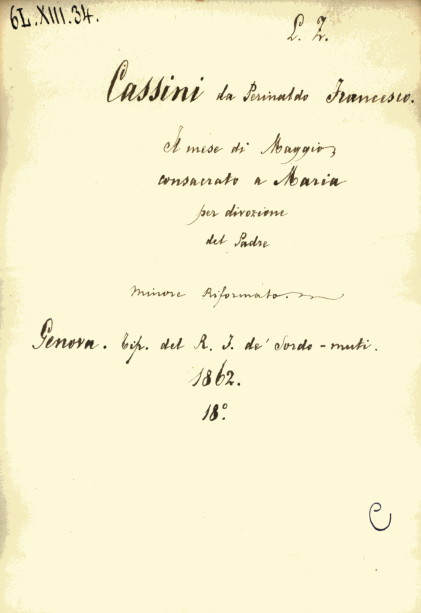 6L.XIII.34.
L. Z.
Cassini da Perinaldo Francesco.
Il mese di Maggio,
consacrato a Maria
per divozione
del Padre
Minore Riformato.
Genova. Tip. del R. I. de' Sordo-muti.
1862.
18°.
C